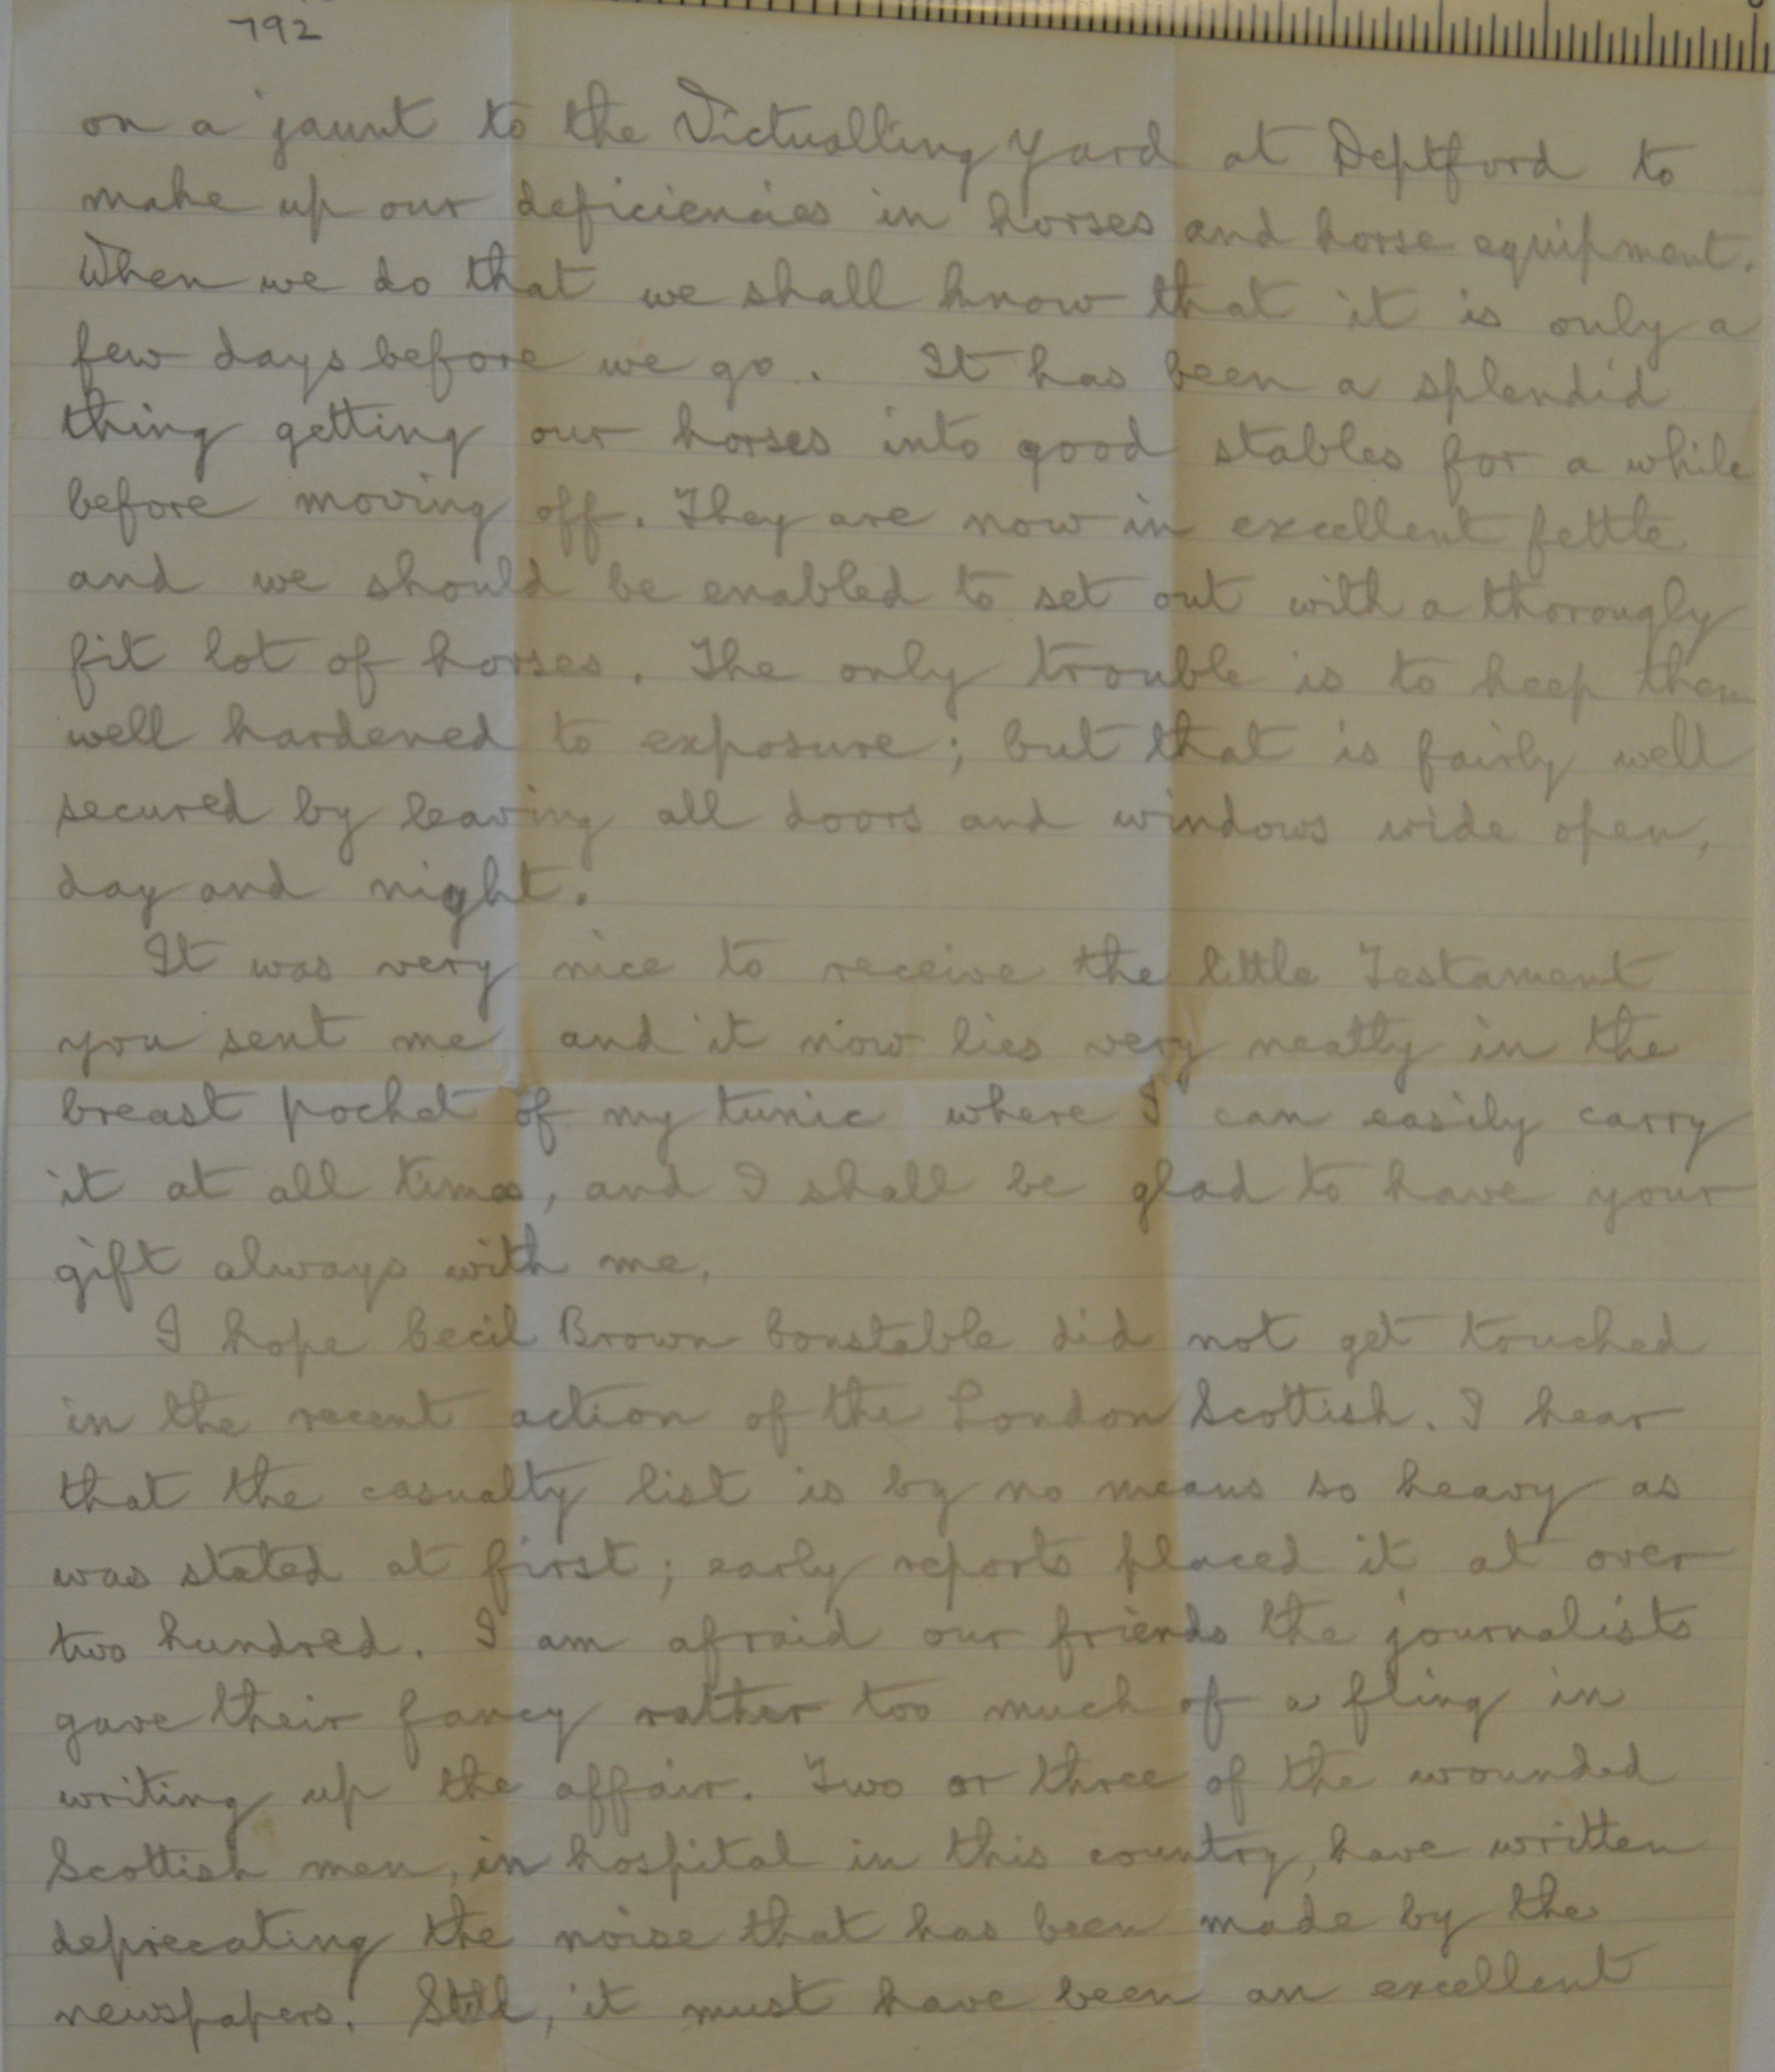 792
on a jaunt to the Victualling Yard at Deptford to
make up our deficiencies in horses and horse equipment.
When we do that we shall know that it is only a
few days before we go. It has been a splendid
thing getting our horses into good stables for a while
before moving off. They are now in excellent fettle
and we should be enabled to set out with a thorougly
fit lot of horses. The only trouble is to keep them
well hardened to exposure; but that is fairly well
secured by leaving all doors and windows wide open,
day and night.
It was very nice to receive the little Testament
you sent me and it now lies very neatly in the
breast pocket of my tunic where I can easily carry
it at all times, and I shall be glad to have your
gift always with me.
I hope Cecil Brown Constable did not get touched
in the recent action of the London Scottish. I hear
that the casualty list is by no means so heavy as
was stated at first; early reports placed it at over
two hundred. I am afraid our friends the journalists
gave their fancy rather too much of a fling in
writing up the affair. Two or three of the wounded
Scottish men, in hospital in this country, have written
deprecating the noise that has been made by the
newspapers. Still, it must have been an excellent